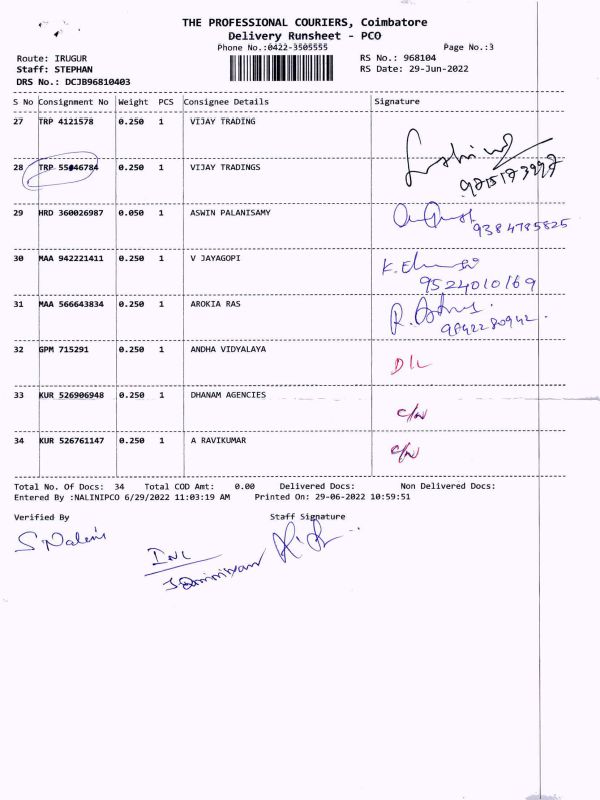 THE PROFESSIONAL COURIERS, Coimbatore
Delivery Runsheet - PCO
Phone No.:0422-3505555 Page No.:3
Route: IRUGUR RS No.: 968104
Staff: STEPHAN RS Date: 29-Jun-2022
DRS No.: DCJB96810403
S No Consignment No Weight PCS Consignee Details Signature
27 TRP 4121578 0.250 1 VIJAY TRADING
28 TRP 55 46784 0.250 1 VIJAY TRADINGS
9715173997
29 HRD 360026987 0.050 1 ASWIN PALANISAMY
9384785825
30 MAA 942221411 0.250 1 V JAYAGOPI
9524010169
31 MAA 566643834 0.250 1 AROKIA RAS
9842280942
32 GPM 715291 0.250 1 ANDHA VIDYALAYA D/L
33 KUR 526906948 0.250 1 DHANAM AGENCIES C/N
34 KUR 526761147 0.250 1 A RAVIKUMAR C/N
Total No. Of Docs: 34 Total COD Amt: 0.00 Delivered Docs: Non Delivered Docs:
Entered By :NALINIPCO 6/29/2022 11:03:19 AM Printed On: 29-06-2022 10:59:51
Verified By Staff Signature
S Nalini